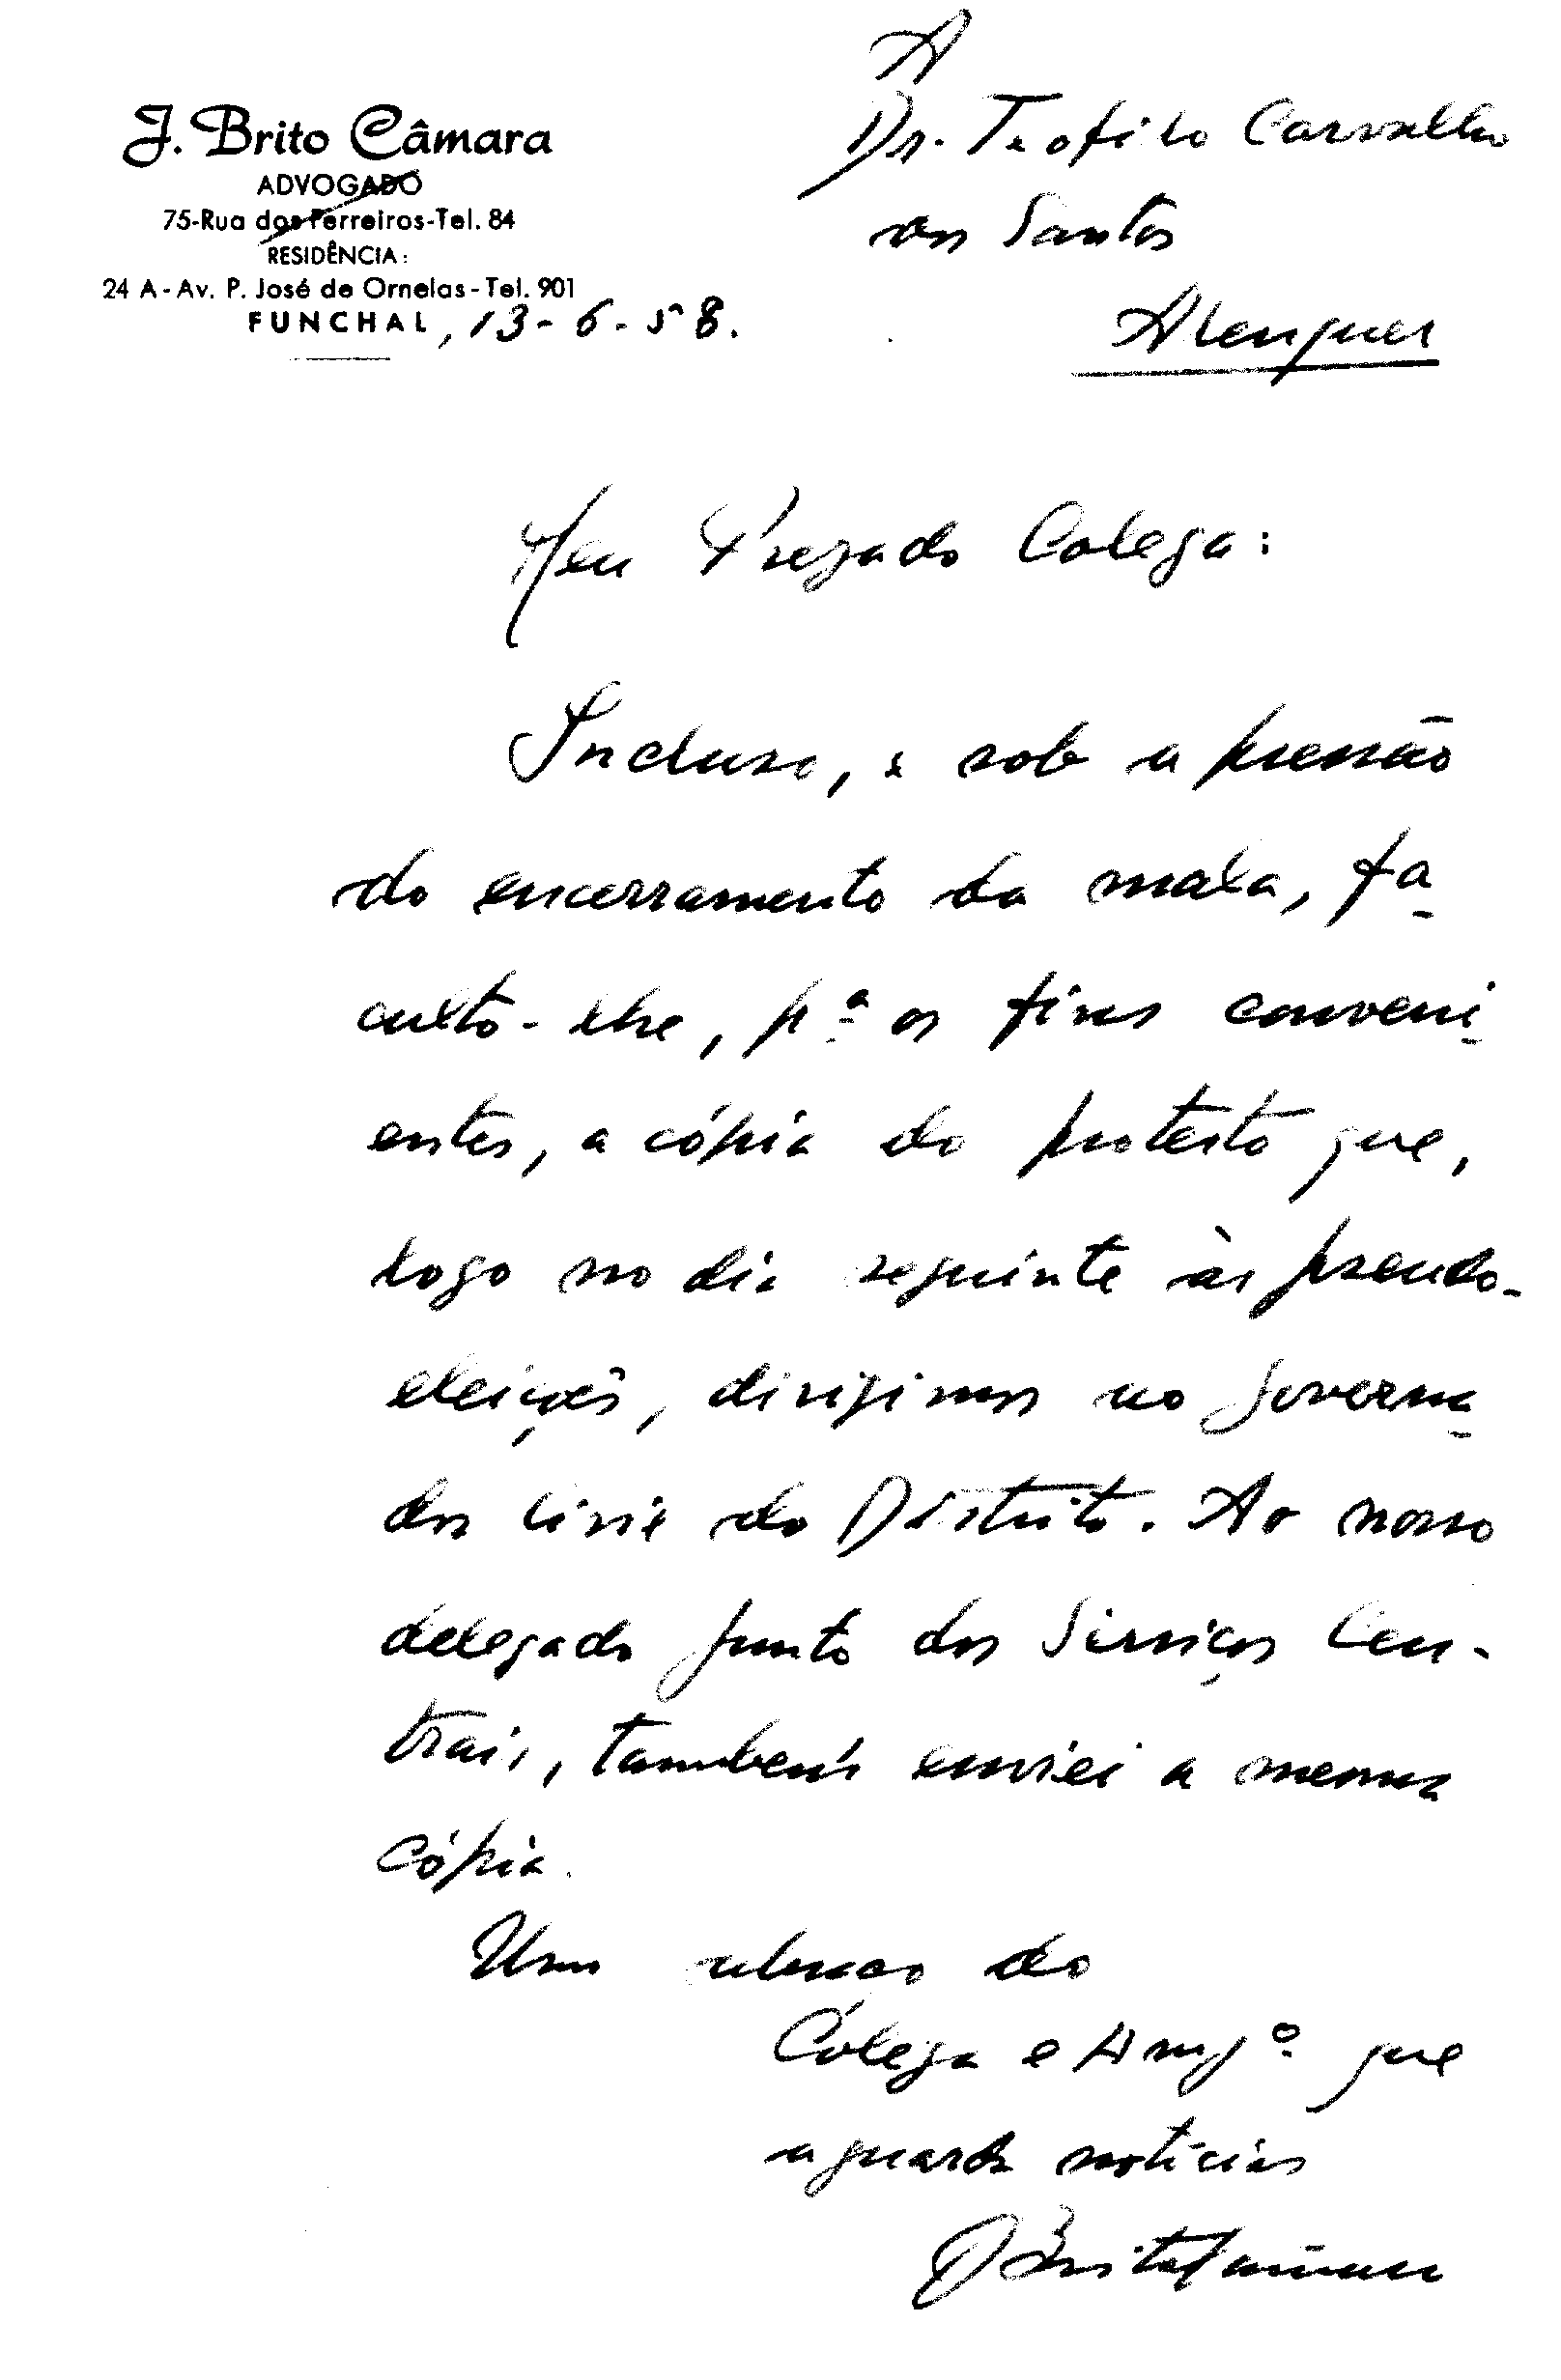 J. Brito Câmara
ADVOGADO
75-Rua dos Ferreiros-Tel. 84
RESIDÊNCIA:
24 A - Av. P. José de Ornelas - Tel. 901
FUNCHAL, 13-6-58.
A
Dr. Teofilo Carvalho
dos Santos
Alenquer
Meu Prezado Colega:
Incluso, e sob a pressão
do encerramento da mala, fa-
culto-lhe, pª os fins conveni-
entes, a cópia do protesto que,
logo no dia seguinte às pseudo-
eleições, dirigimos ao Governa-
dor Civil do Distrito. Ao nosso
delegado junto dos Serviços Cen-
trais, também enviei a mesma
cópia.
Um abraço do
Colega e Amgº que
aguarda notícias
J Brito Câmara